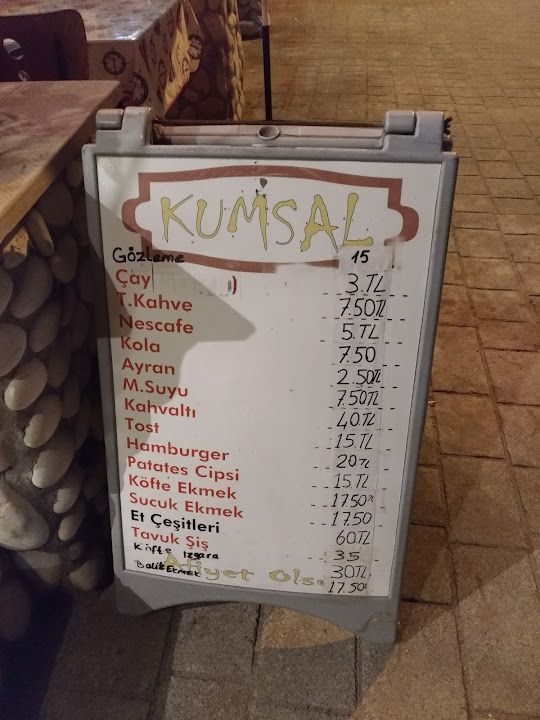 KUMSAL
Gözleme 15
Çay 3.TL
T.Kahve 7.50TL
Nescafe 5.TL
Kola 7.50
Ayran 2.50TL
M.Suyu 7.50TL
Kahvaltı 40.TL
Tost 15.TL
Hamburger 20TL
Patates Cipsi 15.TL
Köfte Ekmek 17.50TL
Sucuk Ekmek 17.50
Et Çeşitleri 60TL
Tavuk Şiş 35
Köfte Izgara 30TL
Afiyet Ols
Balık EKMEK 17.50